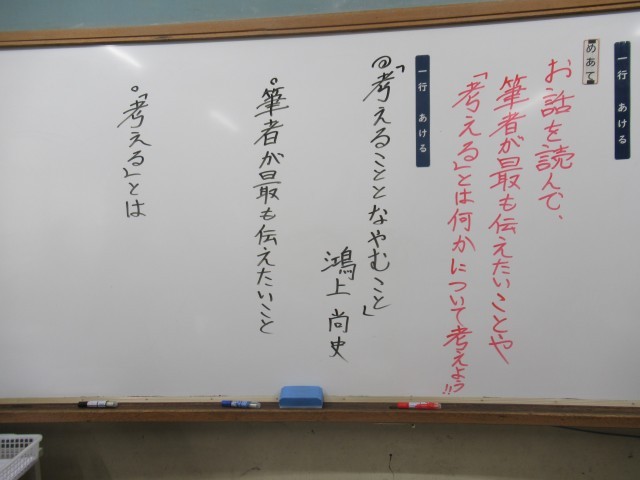 一行 あける
めあて
お話を読んで、
筆者が最も伝えたいことや
「考える」とは何かについて考えよう!!
一行 あける
◎「考えることとなやむこと」
鴻上尚史
◦筆者が最も伝えたいこと
◦「考える」とは